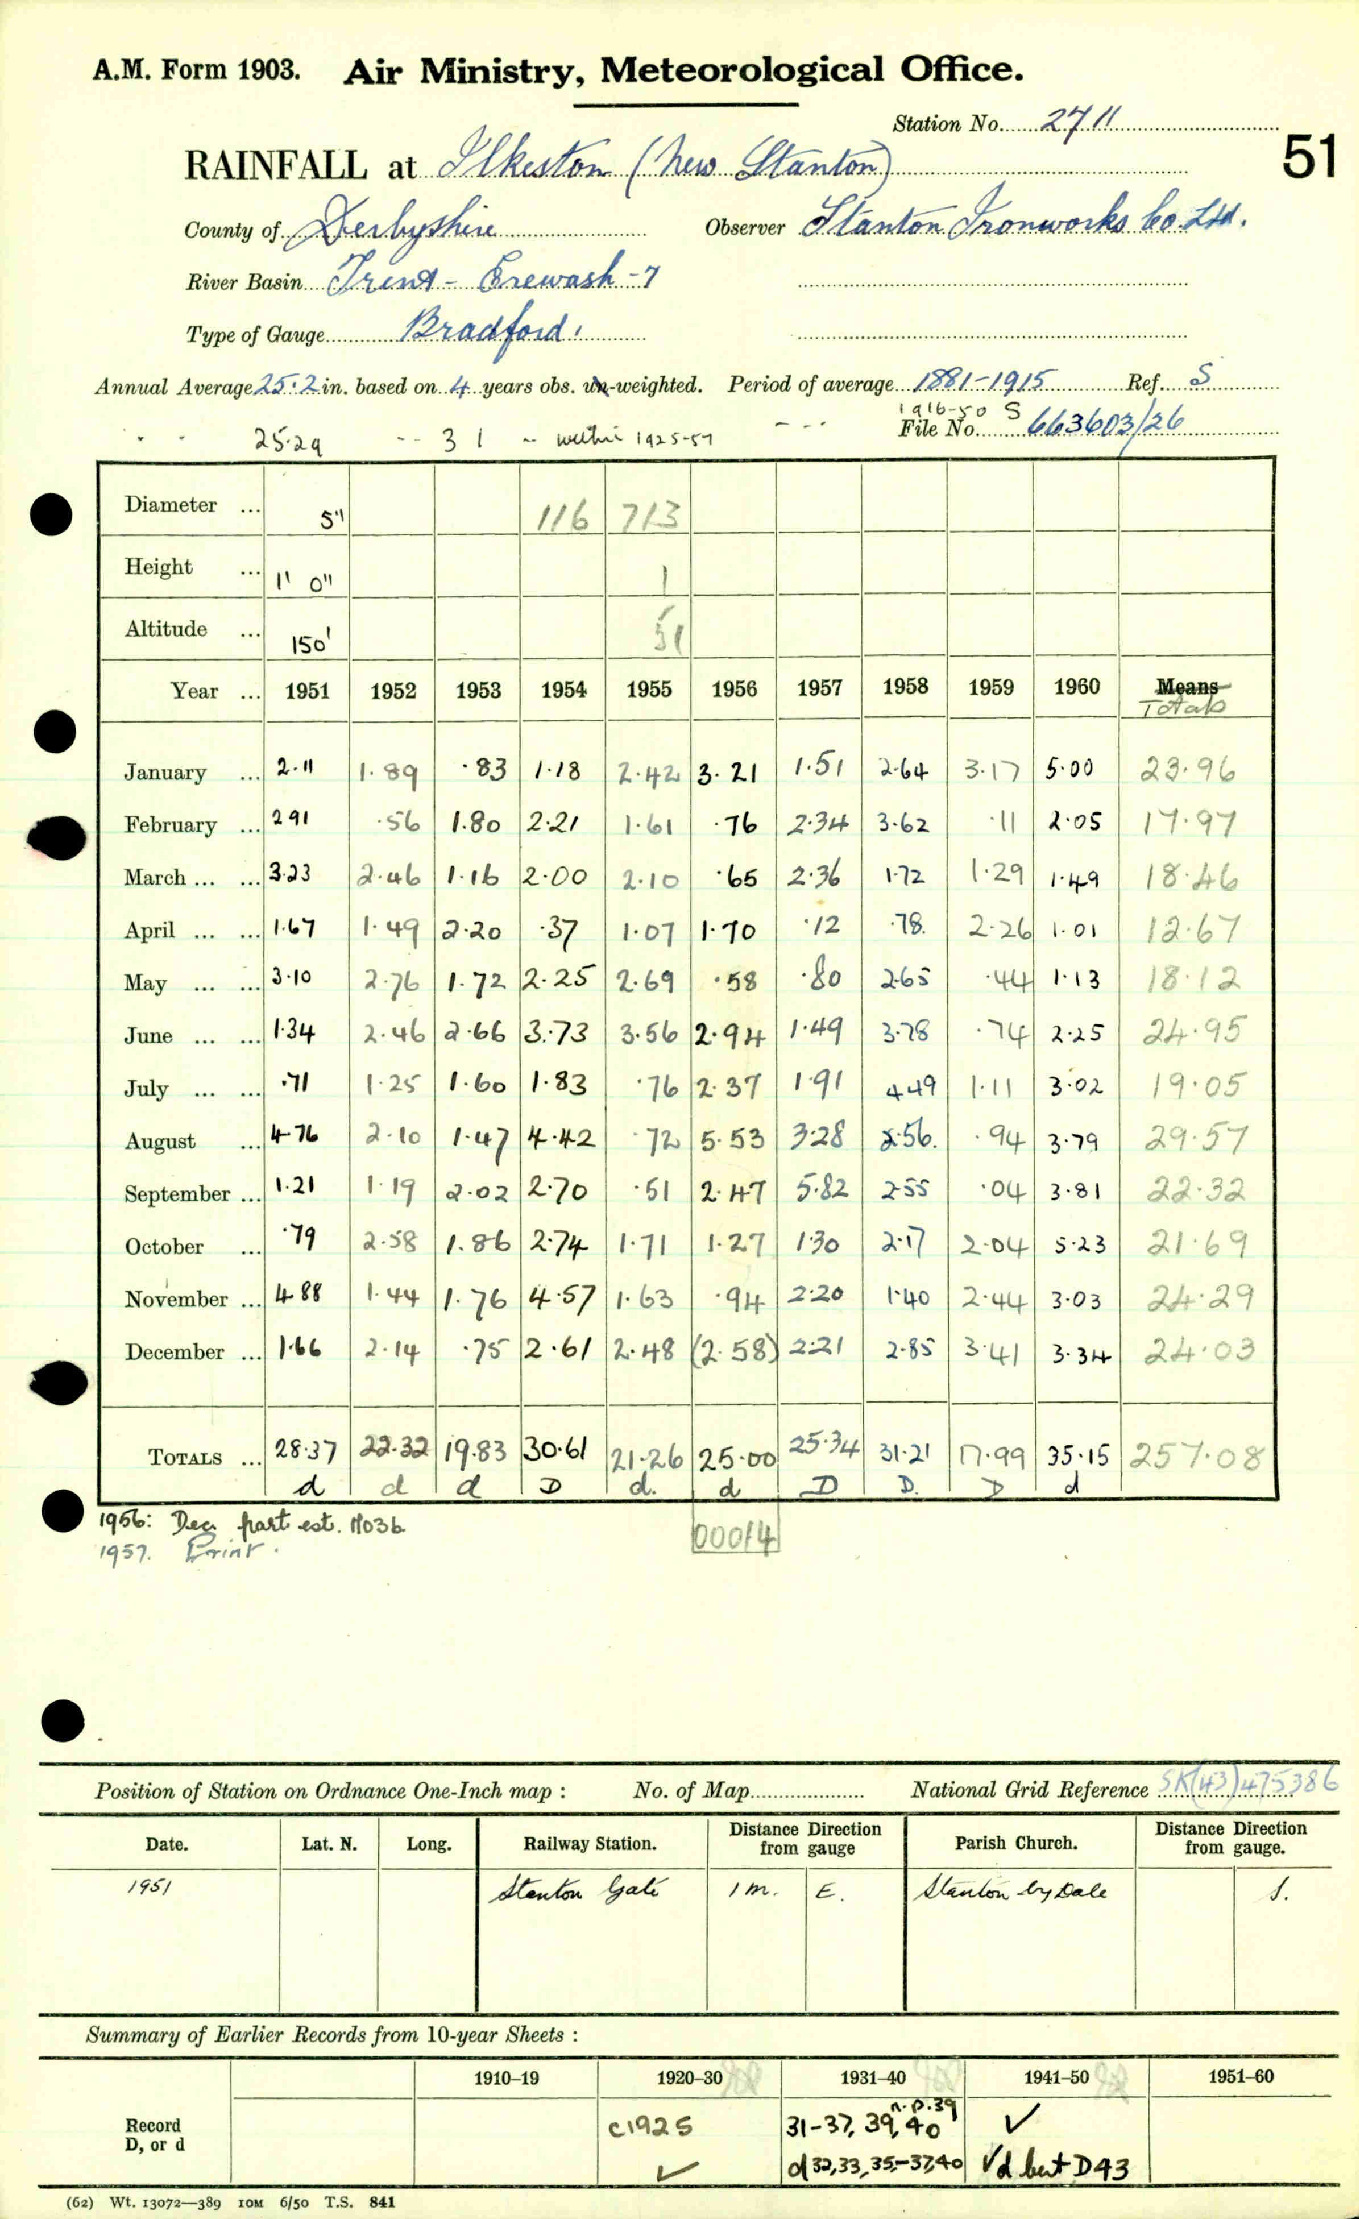 A.M. Form 1903. Air Ministry, Meteorological Office.
Station No. 2711
51
RAINFALL at Ilkeston (New Stanton)
County of Derbyshire Observer Stanton Ironworks Co. Ltd.
River Basin Trent - Erewash - 7
Type of Gauge Bradford.
Annual Average 25.2 in. based on 4 years obs. un-weighted. Period of average 1881-1915 Ref. S
1916-50 S
File No. 663603/26
" " 25.29 -- 31 -- within 1925-57 - --
Diameter ... 5" 116 713
Height ... 1' 0" 1
Altitude ... 150' 51
Year ... 1951 1952 1953 1954 1955 1956 1957 1958 1959 1960 Means
Totals
January ... 2.11 1.89 .83 1.18 2.42 3.21 1.51 2.64 3.17 5.00 23.96
February ... 2 91 .56 1.80 2.21 1.61 .76 2.34 3.62 .11 2.05 17.97
March ... ... 3.23 2.46 1.16 2.00 2.10 .65 2.36 1.72 1.29 1.49 18.46
April ... ... 1.67 1.49 2.20 .37 1.07 1.70 .12 .78. 2.26 1.01 12.67
May ... ... 3.10 2.76 1.72 2.25 2.69 .58 .80 2.65 .44 1.13 18.12
June ... ... 1.34 2.46 2.66 3.73 3.56 2.94 1.49 3.78 .74 2.25 24.95
July ... ... .71 1.25 1.60 1.83 .76 2.37 1.91 4.49 1.11 3.02 19.05
August ... 4.76 2.10 1.47 4.42 .72 5.53 3.28 2.56. .94 3.79 29.57
September ... 1.21 1.19 2.02 2.70 .51 2.47 5.82 2.55 .04 3.81 22.32
October ... .79 2.58 1.86 2.74 1.71 1.27 1.30 2.17 2.04 5.23 21.69
November ... 4 88 1.44 1.76 4.57 1.63 .94 2.20 1.40 2.44 3.03 24.29
December ... 1.66 2.14 .75 2.61 2.48 (2.58) 2.21 2.85 3.41 3.34 24.03
TOTALS ... 28.37 22.32 19.83 30.61 21.26 25.00 25.34 31.21 17.99 35.15 257.08
d d d D d. d D D. D d
1956: Dec part est. M03b
00014
1957. Print.
Position of Station on Ordnance One-Inch map : No. of Map National Grid Reference SK(43)475386
Date. Lat. N. Long. Railway Station. Distance from Direction gauge Parish Church. Distance from Direction gauge.
1951 Stanton Gate 1 m. E. Stanton by Dale S.
Summary of Earlier Records from 10-year Sheets :
1910–19 1920–30 1931–40 1941–50 1951–60
n.p.39
Record c1925 31-37, 39, 40 ✓
D, or d ✓ d 32,33,35-37,40 ✓d but D43
(62) Wt. 13072—389 10M 6/50 T.S. 841